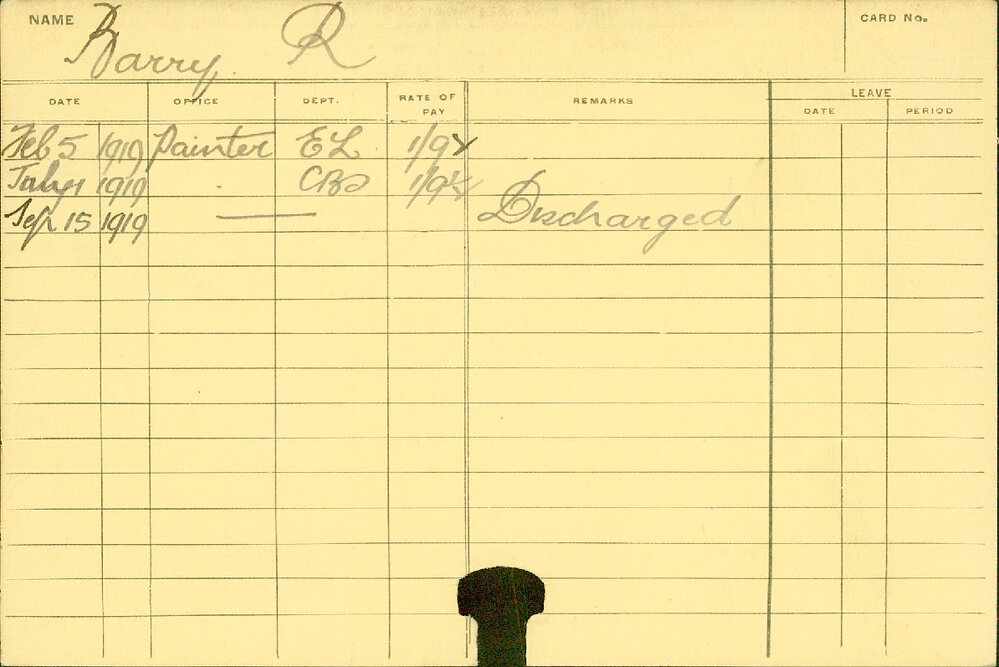 NAME Barry R CARD No.
DATE OFFICE DEPT. RATE OF PAY REMARKS LEAVE
DATE PERIOD
Feb 5 1919 Painter EL 1/9
July 1919 1/9
Sep 15 1919 — Discharged